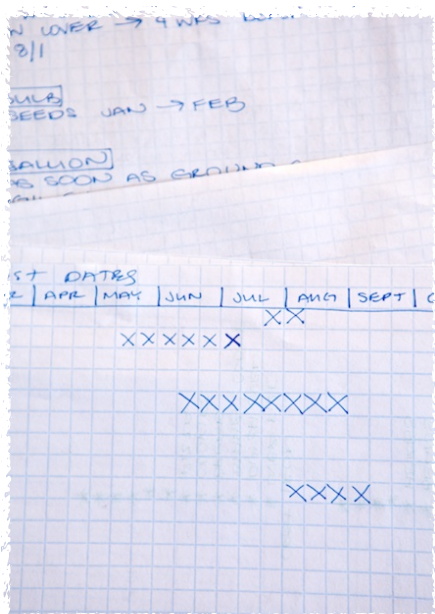 LOVER → 4 WKS
8/1
BULB
SEEDS JAN → FEB
SCALLION
AS SOON AS GROUND
DATES
APR | MAY | JUN | JUL | AUG | SEPT |
XX
XXXXXX
XXXXXXXX
XXXX